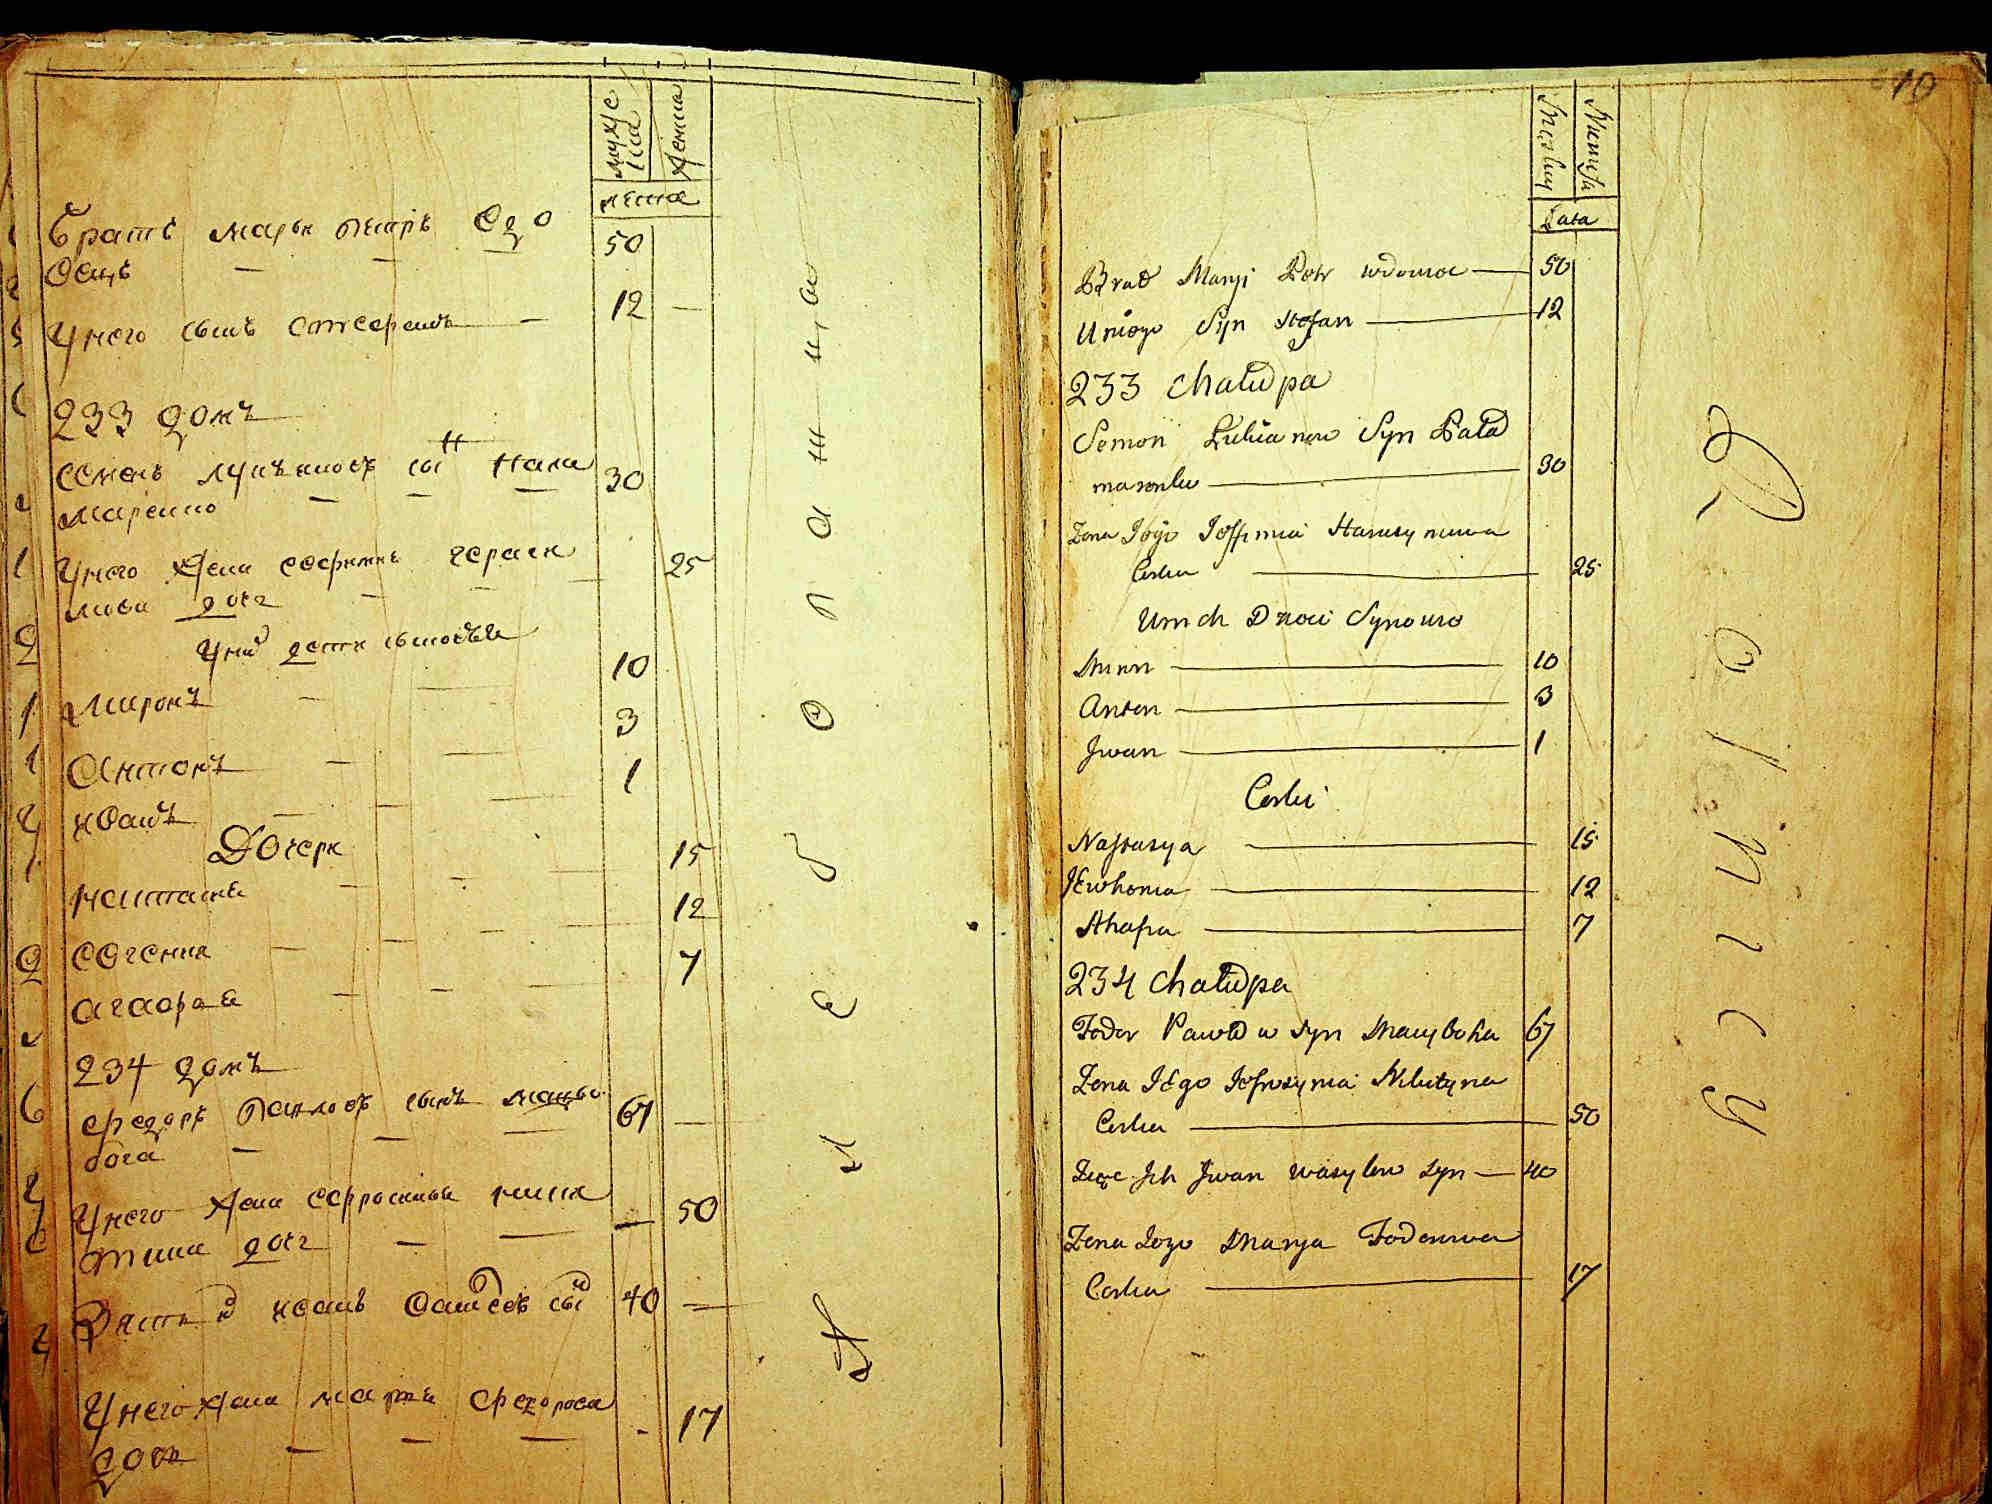 мужеска
женска
лета
Братъ марьи петръ вдо
вецъ 50
Унего сынъ стефанъ 12
233 домъ
семенъ лукъяновъ сынъ пала
маренко 30
Унего жена еефимия гераси
мова дочь 25
Уних дети сыновья
миронъ 10
Антонъ 3
иванъ 1
Дочери
настасия 15
евгения 12
агафия 7
234 домъ
федоръ павловъ сынъ мацы
бога 67
Унего жена ефросиния мики
тина дочь 50
Зять их иванъ василевъ сын 40
Унего жена мария федорова
дочь 17
Необошпап
10
Męskey
Niewista
Lata
Brat Maryi Piotr wdowiec 50
U niego Syn Stefan 12
233 Chałupa
Semon Lukianow Syn Pala
marenko 30
Żona Jogo Joffimia Harasymowa
Corka 25
Umich Dzieci Synowo
Miron 10
Anton 3
Jwan 1
Corki
Nastasya 15
JEwhenia 12
Ahafia 7
234 Chałupa
Fodor Pawłow syn Macyboha 67
Żona JEgo Jofrosynia Mikityna
Corka 50
Zięc Jch Jwan wasylow syn 40
Żona Jogo Marya Fodorowa
Corka 17
Rolnicy